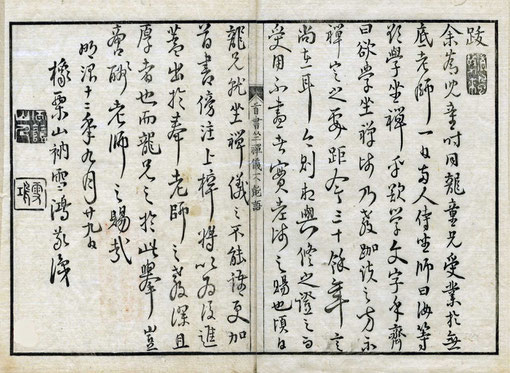 跋
余為兒童時同龍童兄受業於無
底老師一日人侍坐師曰汝等
欲學坐禪乎欲学文字乎齊
曰欲學坐禪師乃教跏趺之方示
禪定之要距今三十餘年言
尚在耳今則相與修之證之日
受用不盡者實老師之賜也頃日
首書坐禪儀不能語
龍兄就坐禪儀之不能語更加
首書傍注上梓將以為後進
蓋出於奉老師之教深且
厚者也而龍兄之於此舉豈
啻酬老師之賜哉
明治十三年九月廿九日
橡栗山衲雪鴻敬識